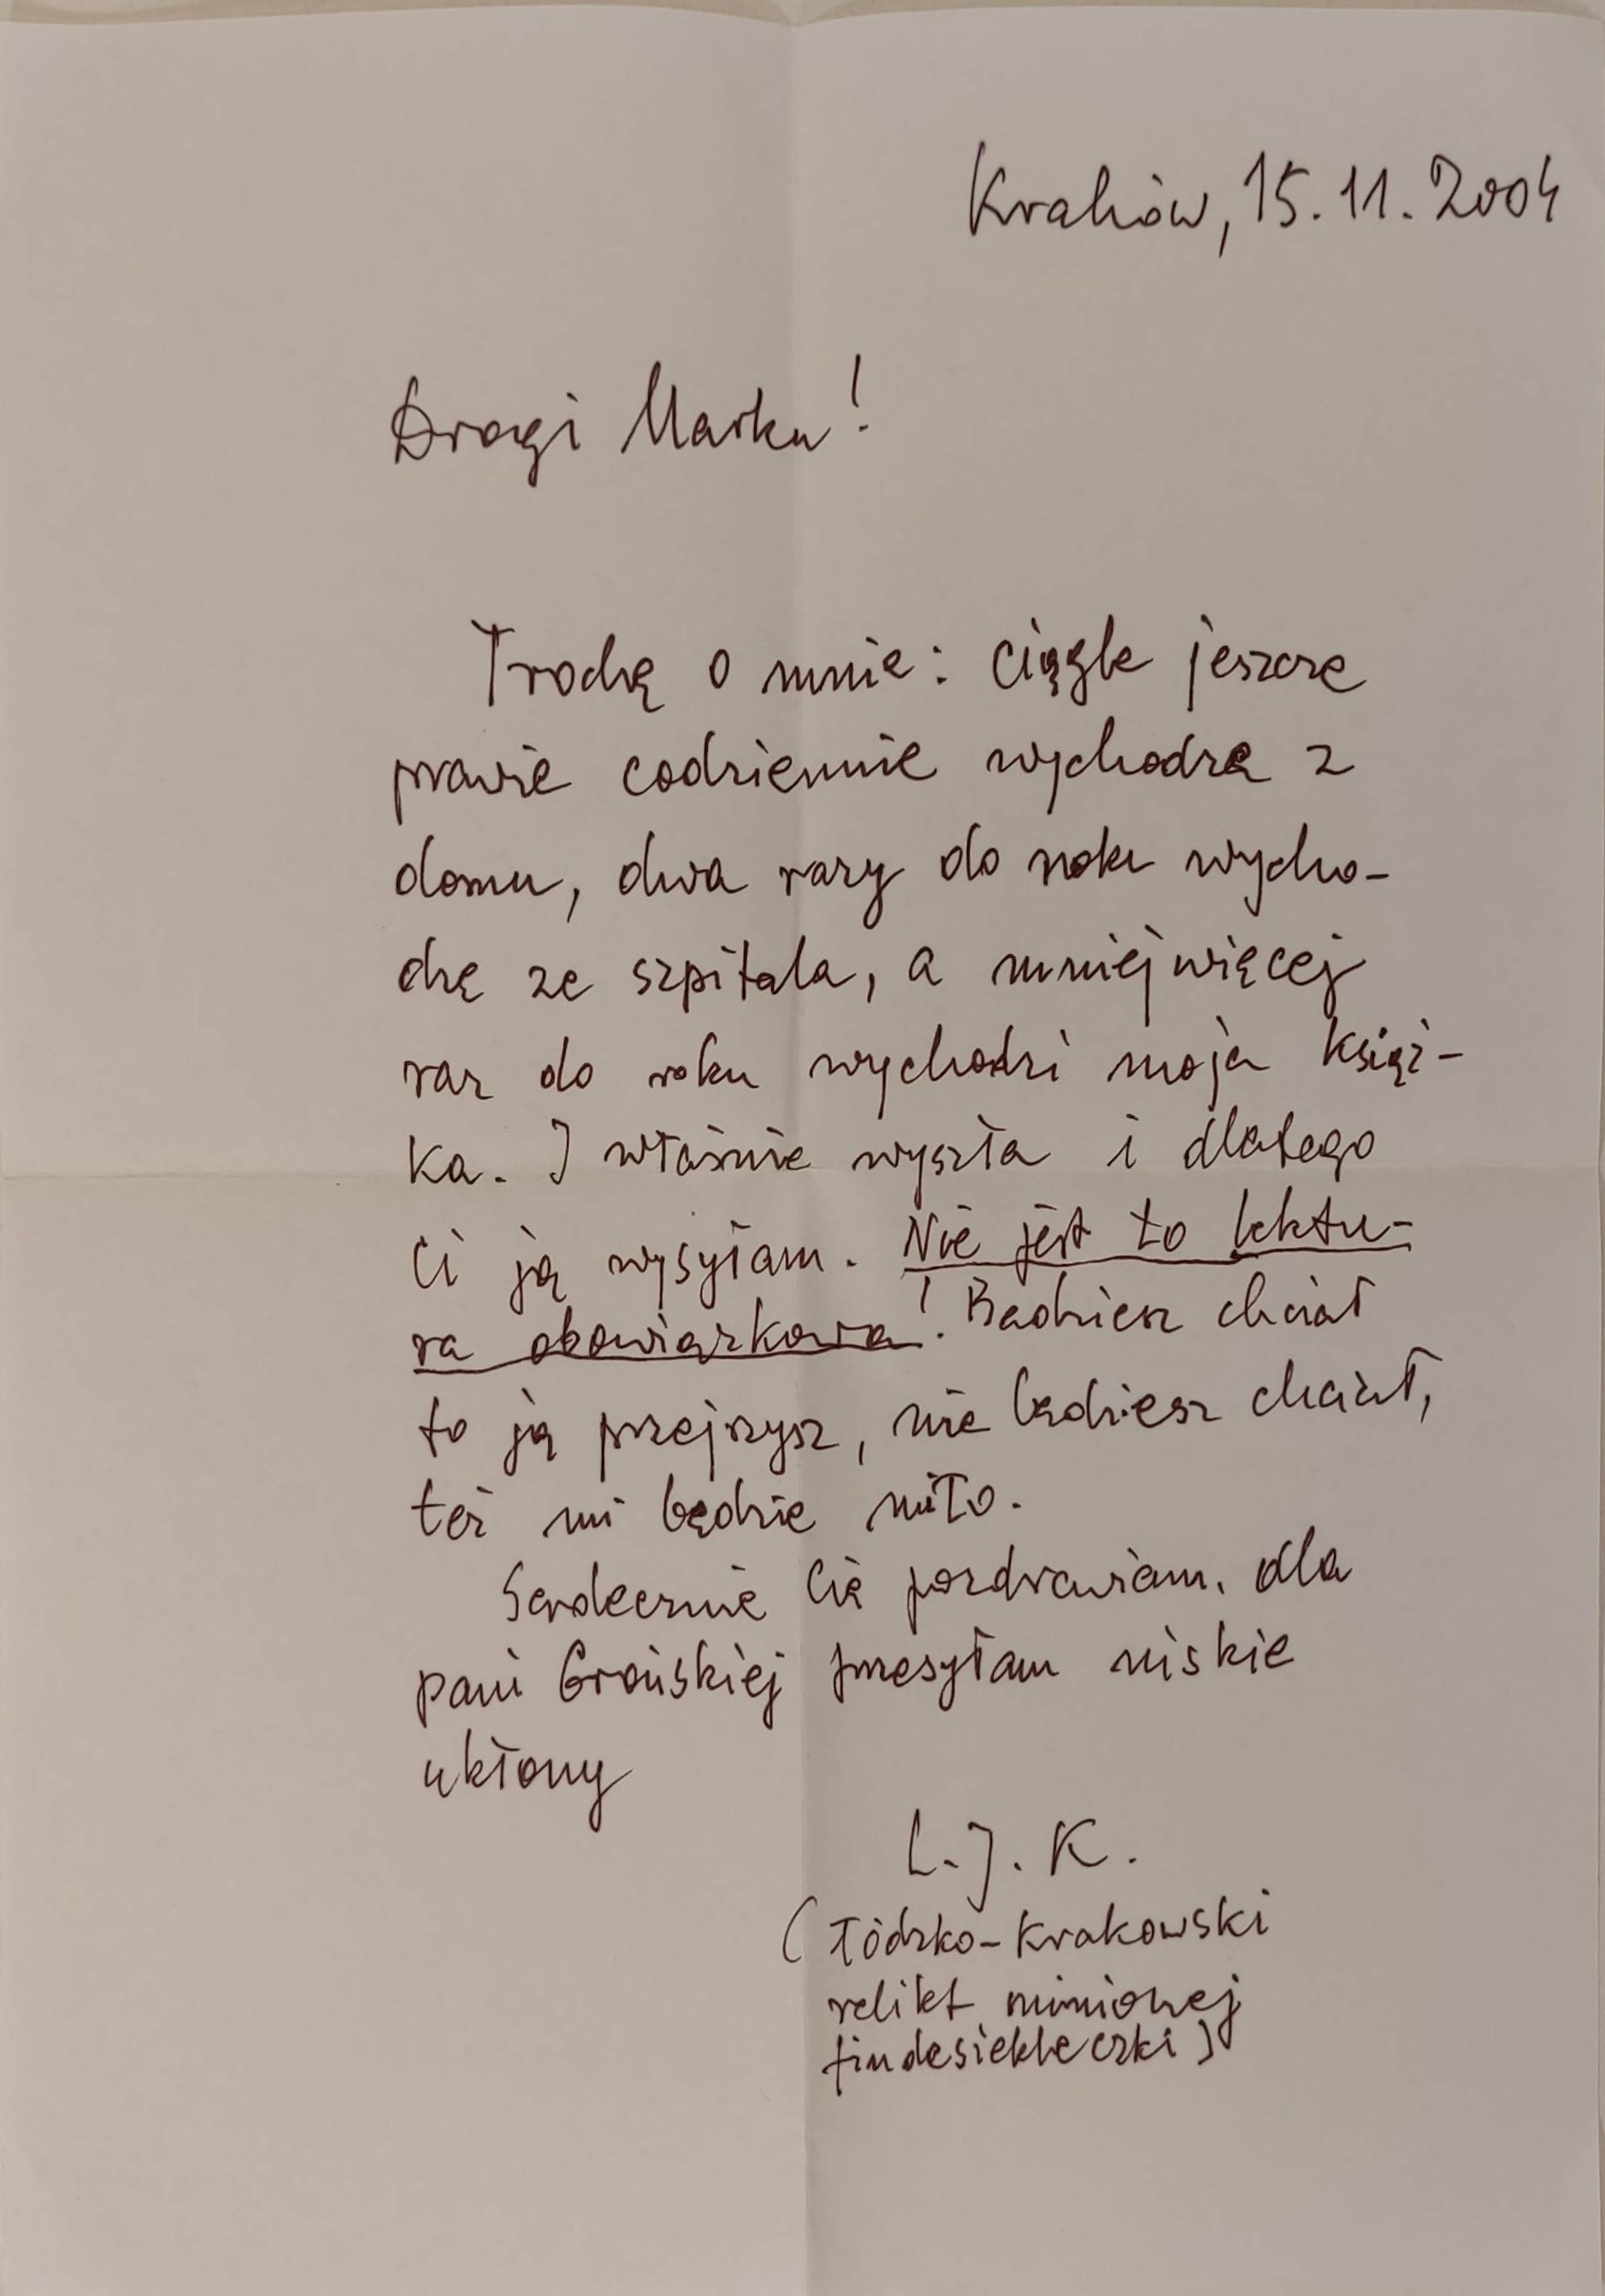 Kraków, 15.11.2004
Drogi Marku!
Trochę o mnie: ciągle jeszcze
prawie codziennie wychodzę z
domu, dwa razy do roku wycho-
dzę ze szpitala, a mniej więcej
raz do roku wychodzi moja książ-
ka. I właśnie wyszła i dlatego
Ci ją wysyłam. Nie jest to lektu-
ra obowiązkowa! Będziesz chciał
to ją przejrzysz, nie będziesz chciał,
też mi będzie miło.
Serdecznie Cię pozdrawiam. dla
pani Grońskiej przesyłam niskie
ukłony
L.J.K.
(Łódzko-Krakowski
relikt minionej
findesiekleczki)